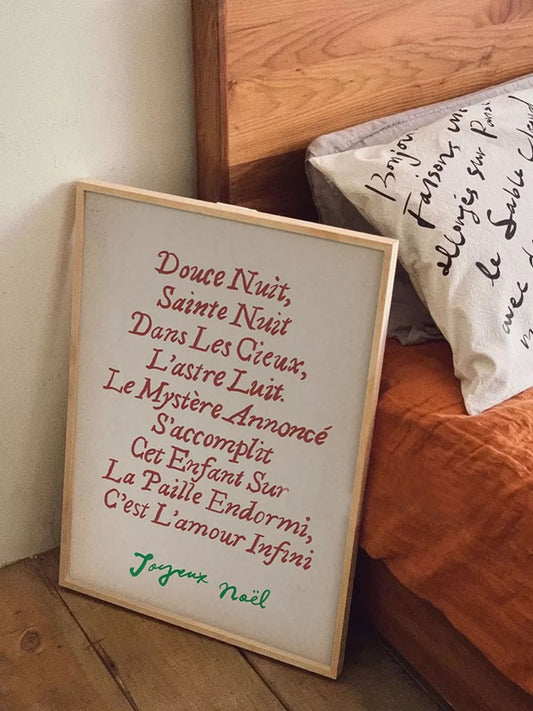 Douce Nuit,
Sainte Nuit
Dans Les Cieux,
L'astre Luit.
Le Mystère Annoncé
S'accomplit
Cet Enfant Sur
La Paille Endormi,
C'est L'amour Infini
Joyeux Noël
Bonjou
Faisons un
allongés sur
le Sable
avec